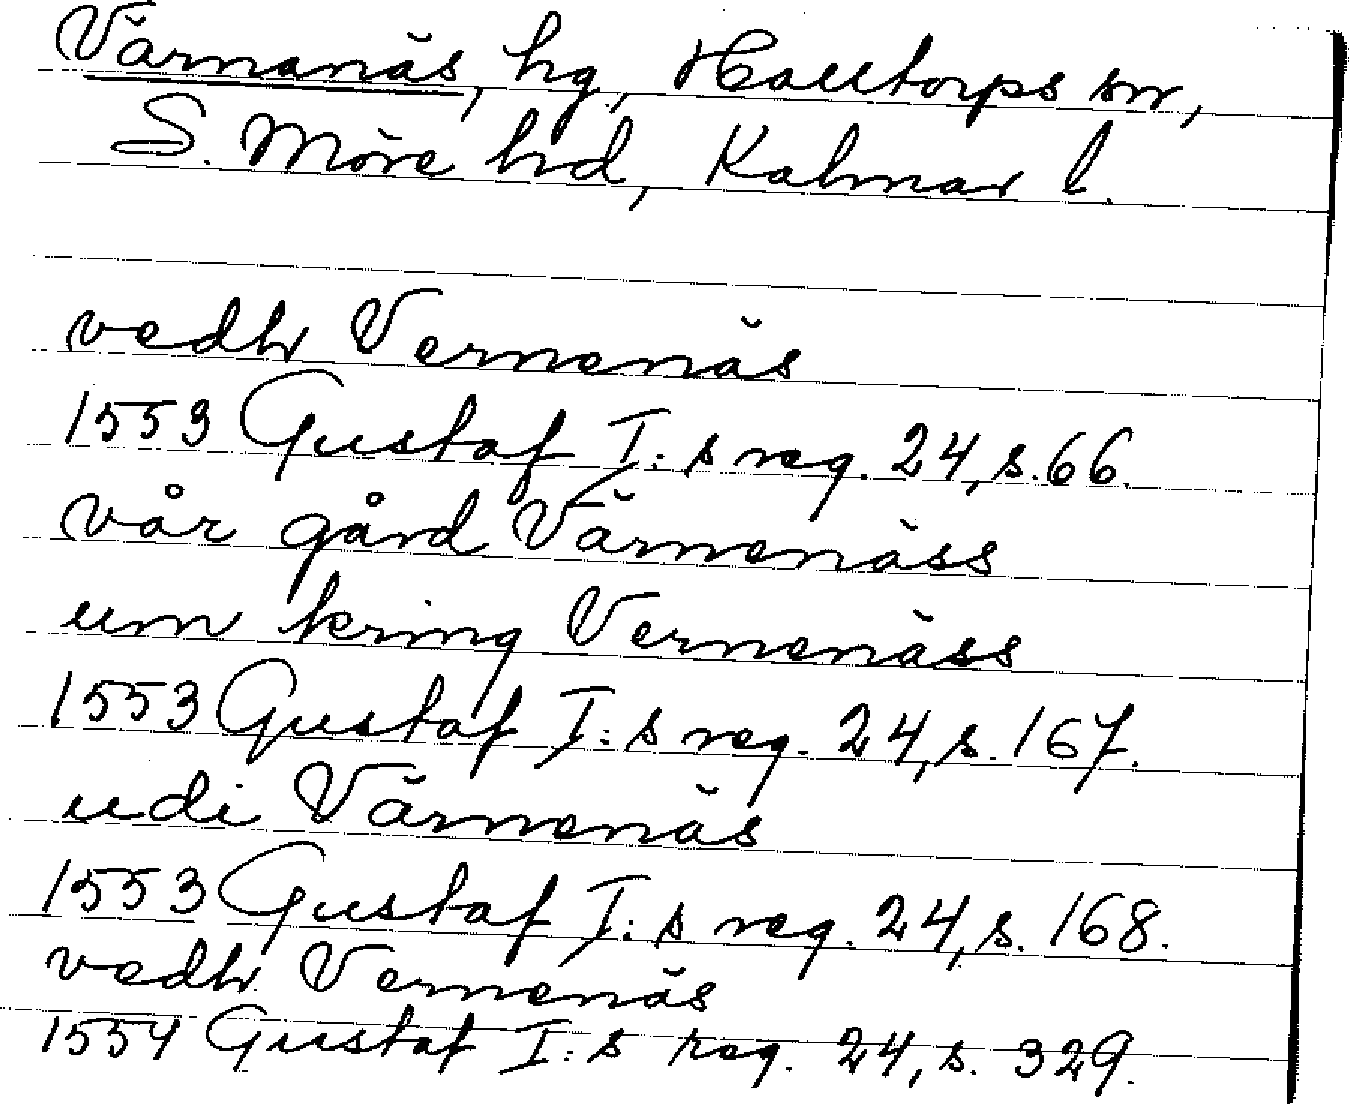 Värnanäs, hg, Halltorps sn,
S. Möre hd, Kalmar l.
vedh Vernenäs
1553 Gustaf I:s reg. 24, s. 66.
vår gård Värnenäss
um kring Vernenäss
1553 Gustaf I:s reg. 24, s. 167.
udi Värnenäs
1553 Gustaf I:s reg. 24, s. 168.
vedh Vernenäs
1554 Gustaf I:s reg. 24, s. 329.